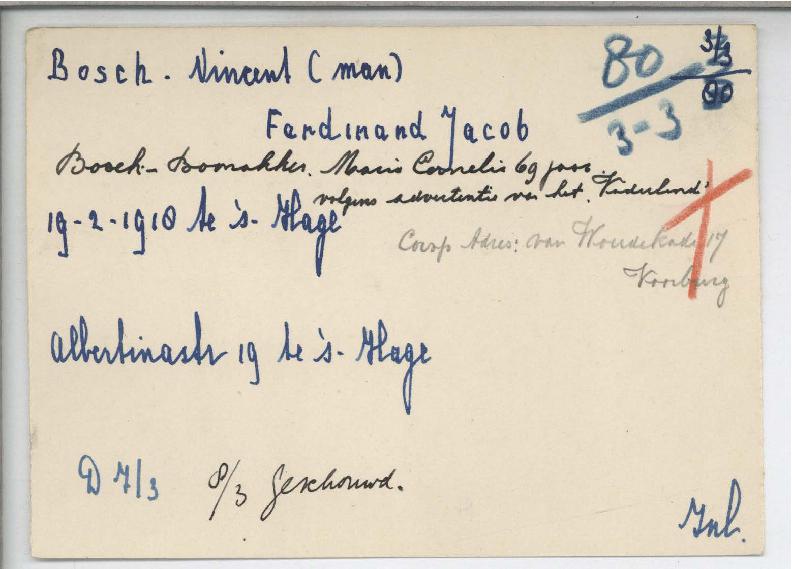 Bosch - Vincent (man)
80
3/3
90
3-3
Ferdinand Jacob
Bosch - Boomakker. Maria Cornelis 69 jaar
volgens advertentie van het "Vaderland"
19-2-1918 te 's-Hage
Corsp Adres: van 17
Voorburg
Albertinastr 19 te 's-Hage
D 7/3 8/3 geschouwd.
Inl.